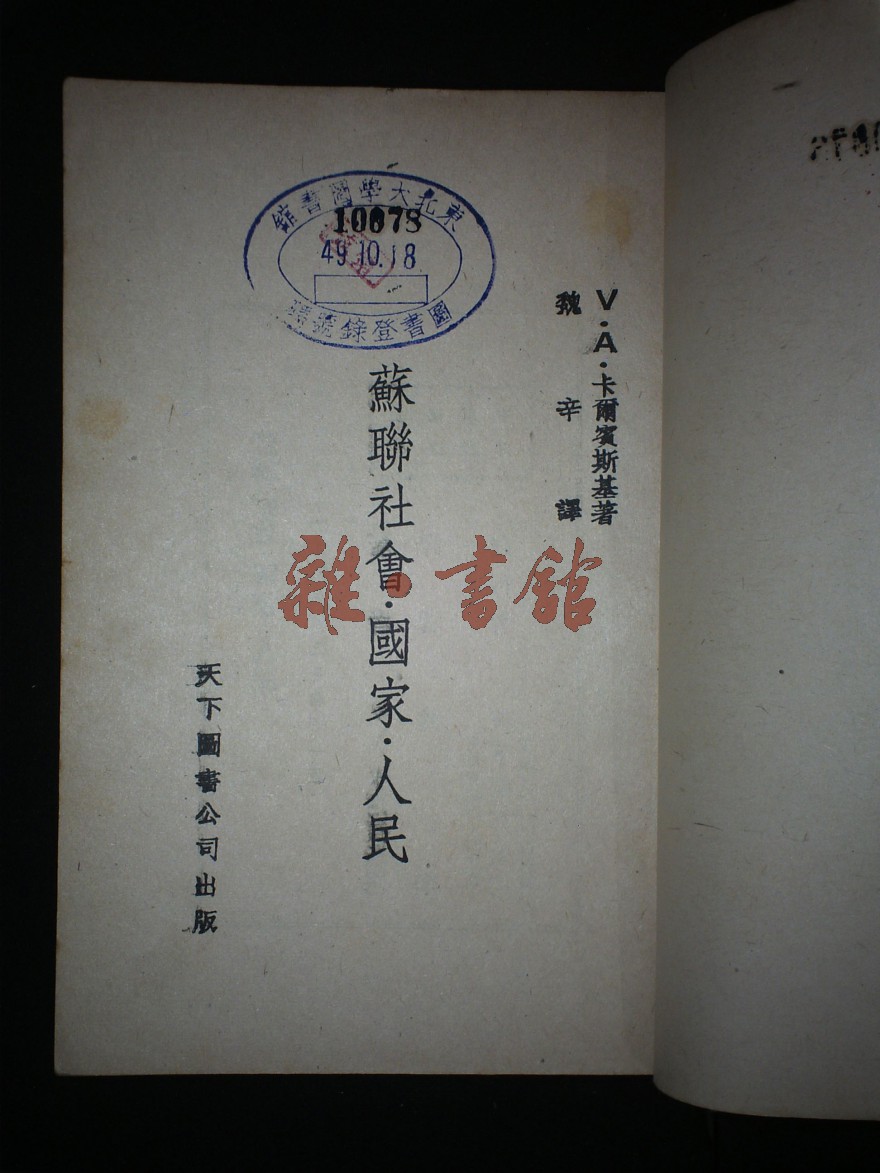 東北大學圖書館
10078
49.10.18
圖書登錄號碼
V·A·卡爾賓斯基著
魏辛譯
蘇聯社會·國家·人民
天下圖書公司出版
雜·書館